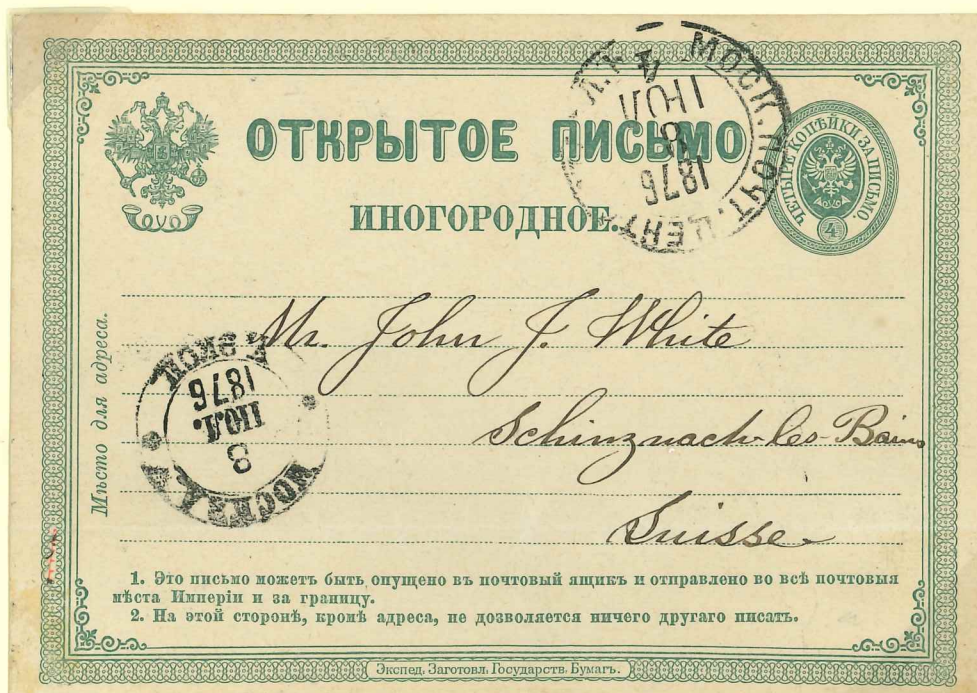 ОТКРЫТОЕ ПИСЬМО
ИНОГОРОДНОЕ.
ЧЕТЫРЕ КОПѢЙКИ ЗА ПИСЬМО.
4
МОСК. ПОЧТ.
ІЮЛ
8
1876
Мѣсто для адреса.
Mr. John J. White
Schinznach-les-Bains
Suisse
МОСКВА
8
ІЮЛ.
1876
1. Это письмо можетъ быть опущено въ почтовый ящикъ и отправлено во всѣ почтовыя
мѣста Имперіи и за границу.
2. На этой сторонѣ, кромѣ адреса, не дозволяется ничего другаго писать.
Экспед. Заготовл. Государств. Бумагъ.